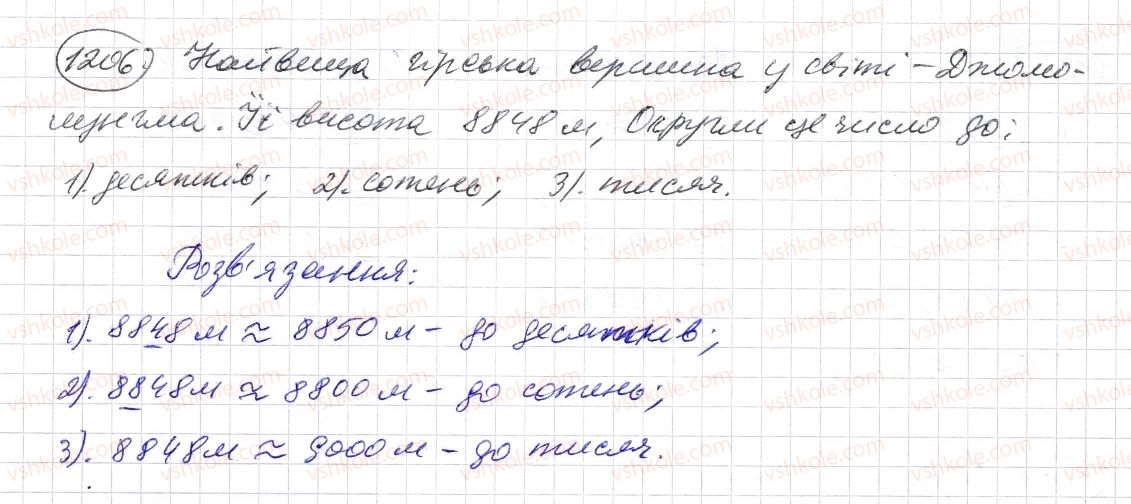 1206) Найвища гірська вершина у світі – Джомо-
лунгма. Її висота 8848 м, Округли це число до:
1). десятків; 2). сотень; 3). тисяч.
Розв'язання:
1). 8848 м ≈ 8850 м – до десятків;
2). 8848 м ≈ 8800 м – до сотень;
3). 8848 м ≈ 9000 м – до тисяч.